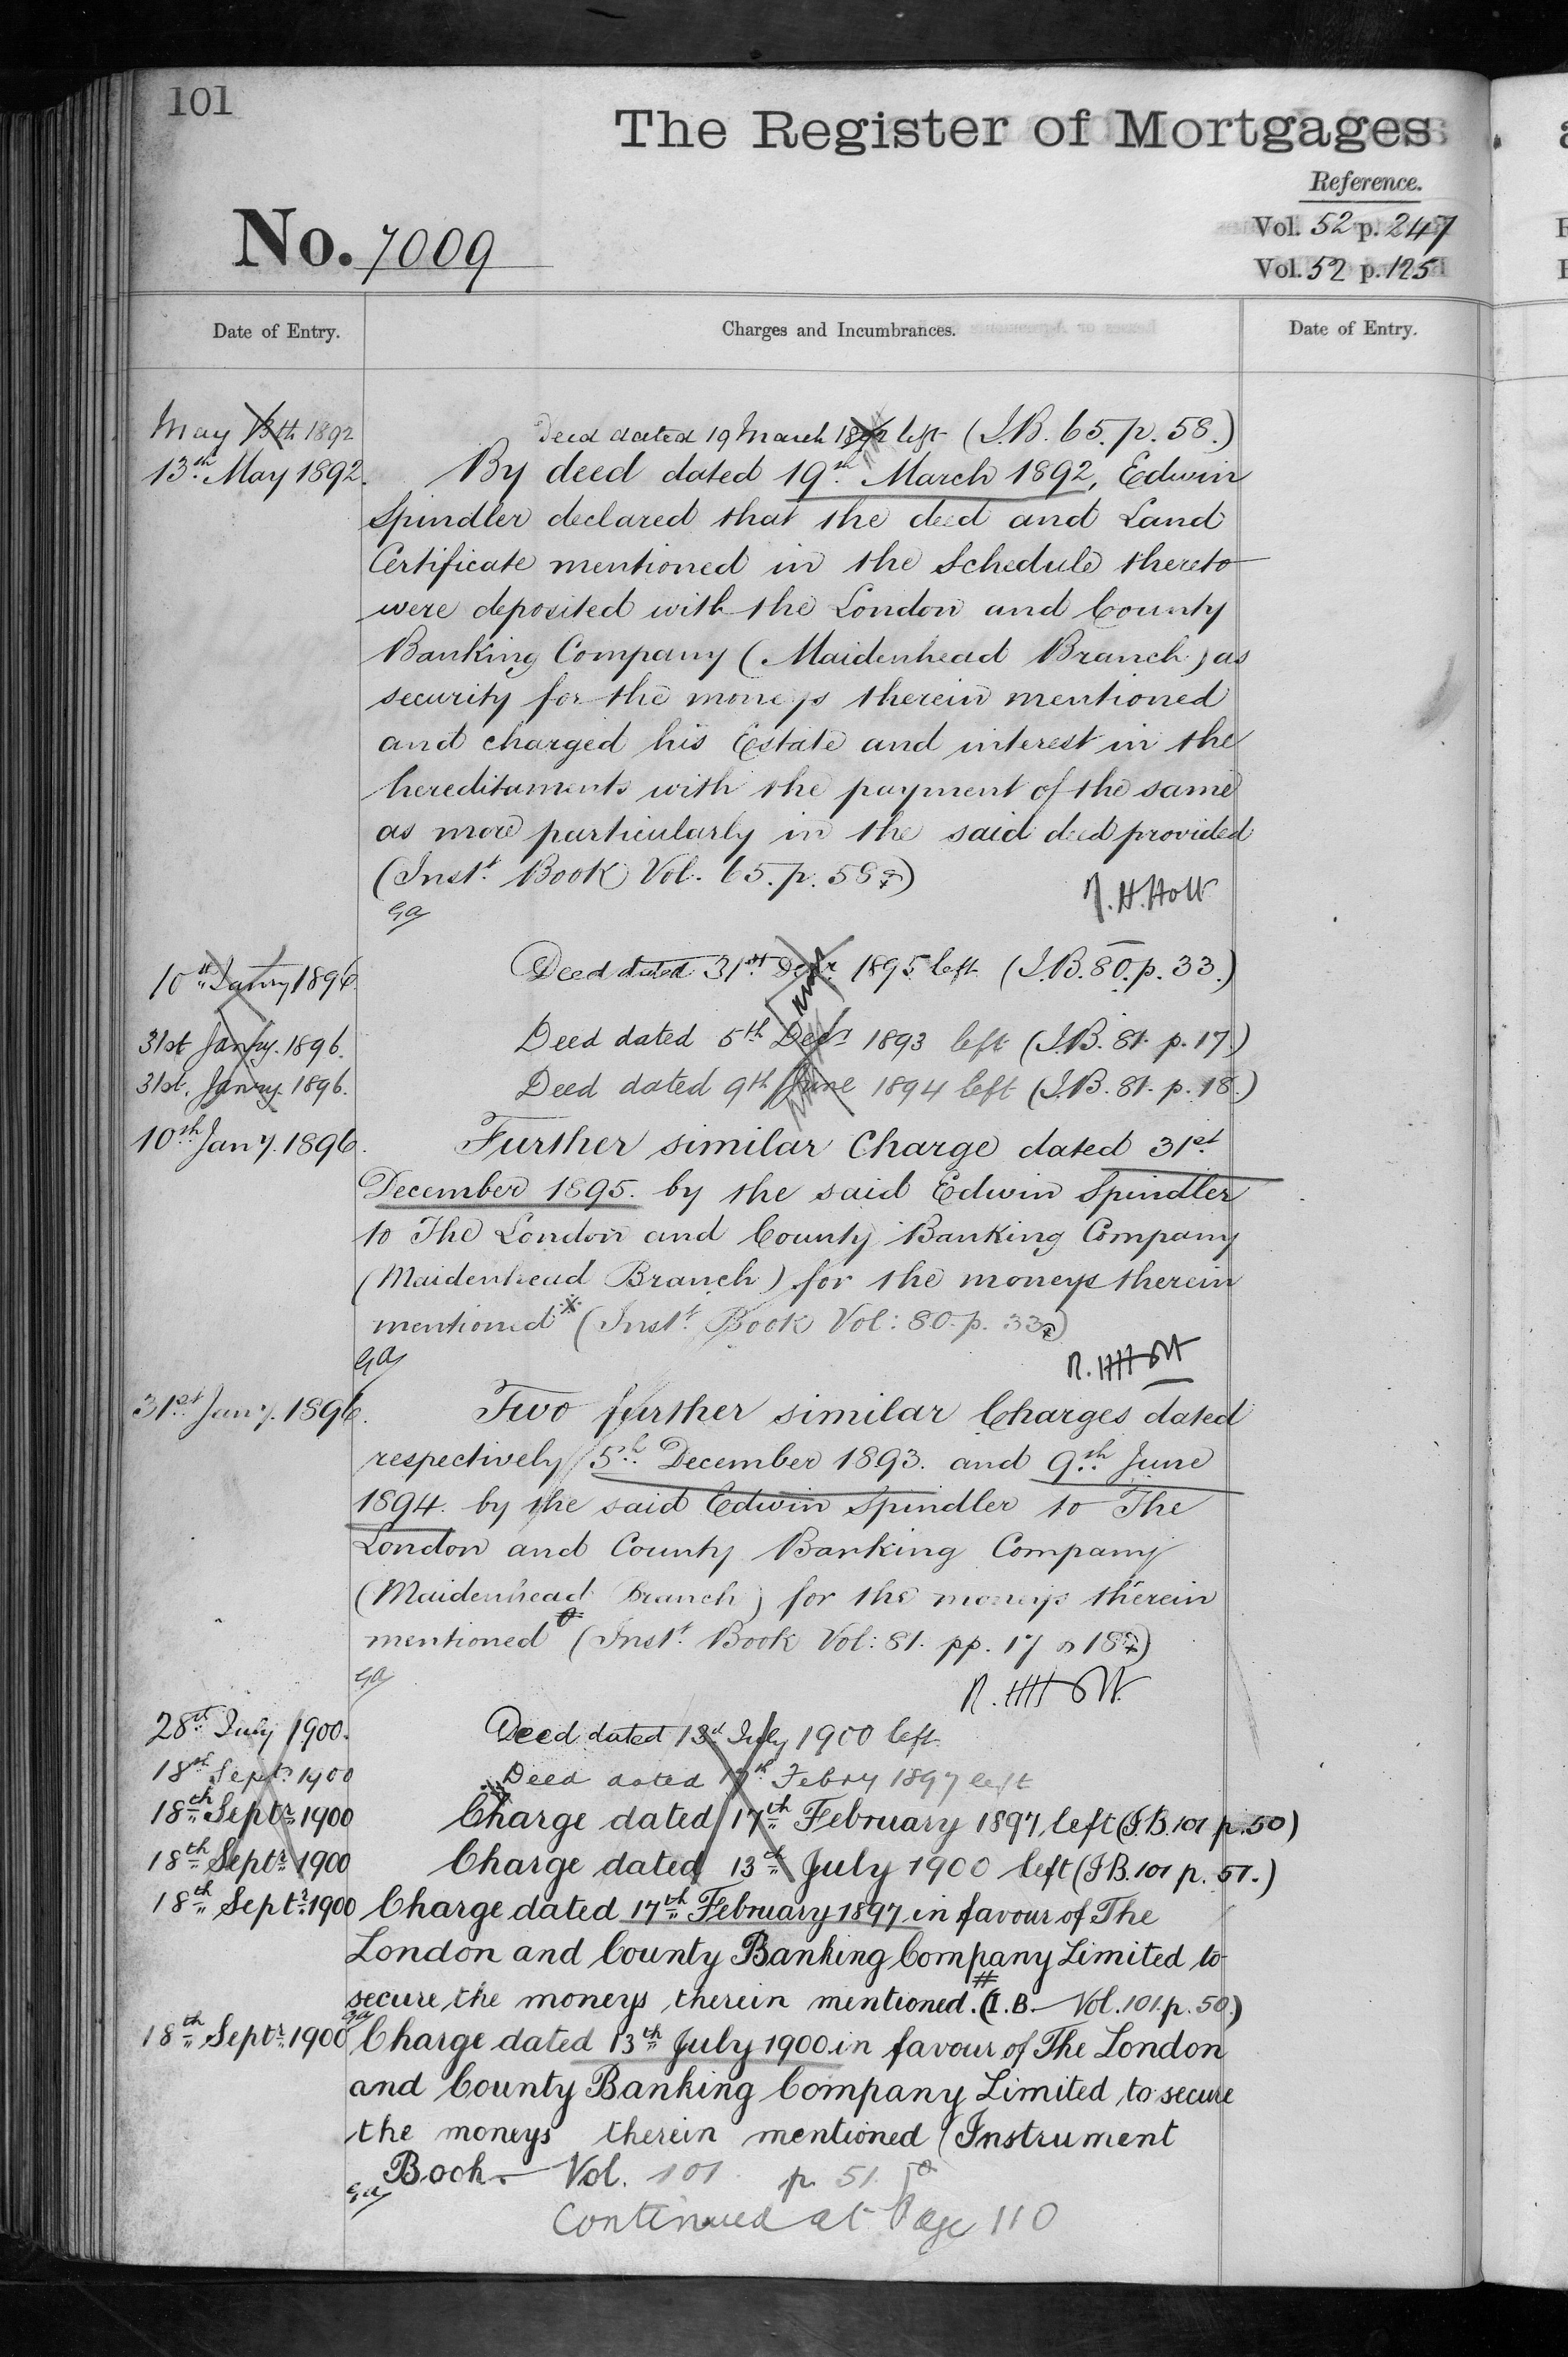 101
The Register of Mortgages
Reference.
No. 7009
Vol. 52 p. 247
Vol. 52 p. 125
Date of Entry.
Charges and Incumbrances.
Date of Entry.
May 13th 1892 Deed dated 19 March 1892 left (I.B. 65. p. 58.)
13th May 1892. By deed dated 19th March 1892, Edwin
Spindler declared that the deed and Land
Certificate mentioned in the Schedule thereto
were deposited with the London and County
Banking Company (Maidenhead Branch) as
security for the moneys therein mentioned
and charged his Estate and interest in the
hereditaments with the payment of the same
as more particularly in the said deed provided
(Inst. Book Vol. 65. p. 58)
Ga
R. H. Holt
10th Janry 1896. Deed dated 31st Decr 1895 left (I.B. 80. p. 33.)
31st Janry. 1896. Deed dated 5th Decr 1893 left (I.B. 81. p. 17.)
31st. Janry. 1896. Deed dated 9th June 1894 left (I.B. 81. p. 18.)
10th Jany. 1896. Further similar Charge dated 31st
December 1895. by the said Edwin Spindler
to The London and County Banking Company
(Maidenhead Branch) for the moneys therein
mentioned (Inst. Book Vol: 80. p. 33)
Ga
R. H. Holt
31st Jany. 1896. Two further similar Charges dated
respectively 5th December 1893. and 9th June
1894. by the said Edwin Spindler to The
London and County Banking Company
(Maidenhead Branch) for the moneys therein
mentioned (Inst. Book Vol: 81. pp. 17 & 18)
Ga
R. H. Holt
28th July 1900. Deed dated 13th July 1900 left
18th Septr 1900 Deed dated 17th Febry 1897 left
18th Septr 1900 Charge dated 17th February 1897 left (I.B. 101 p. 50)
18th Septr 1900 Charge dated 13th July 1900 left (I.B. 101 p. 51.)
18th Septr 1900 Charge dated 17th February 1897 in favour of The
London and County Banking Company Limited to
secure the moneys therein mentioned. (I.B. Vol. 101. p. 50.)
Ga
18th Septr 1900 Charge dated 13th July 1900 in favour of The London
and County Banking Company Limited to secure
the moneys therein mentioned (Instrument
Book Vol. 101 p. 51.
Ga
Continued at Page 110